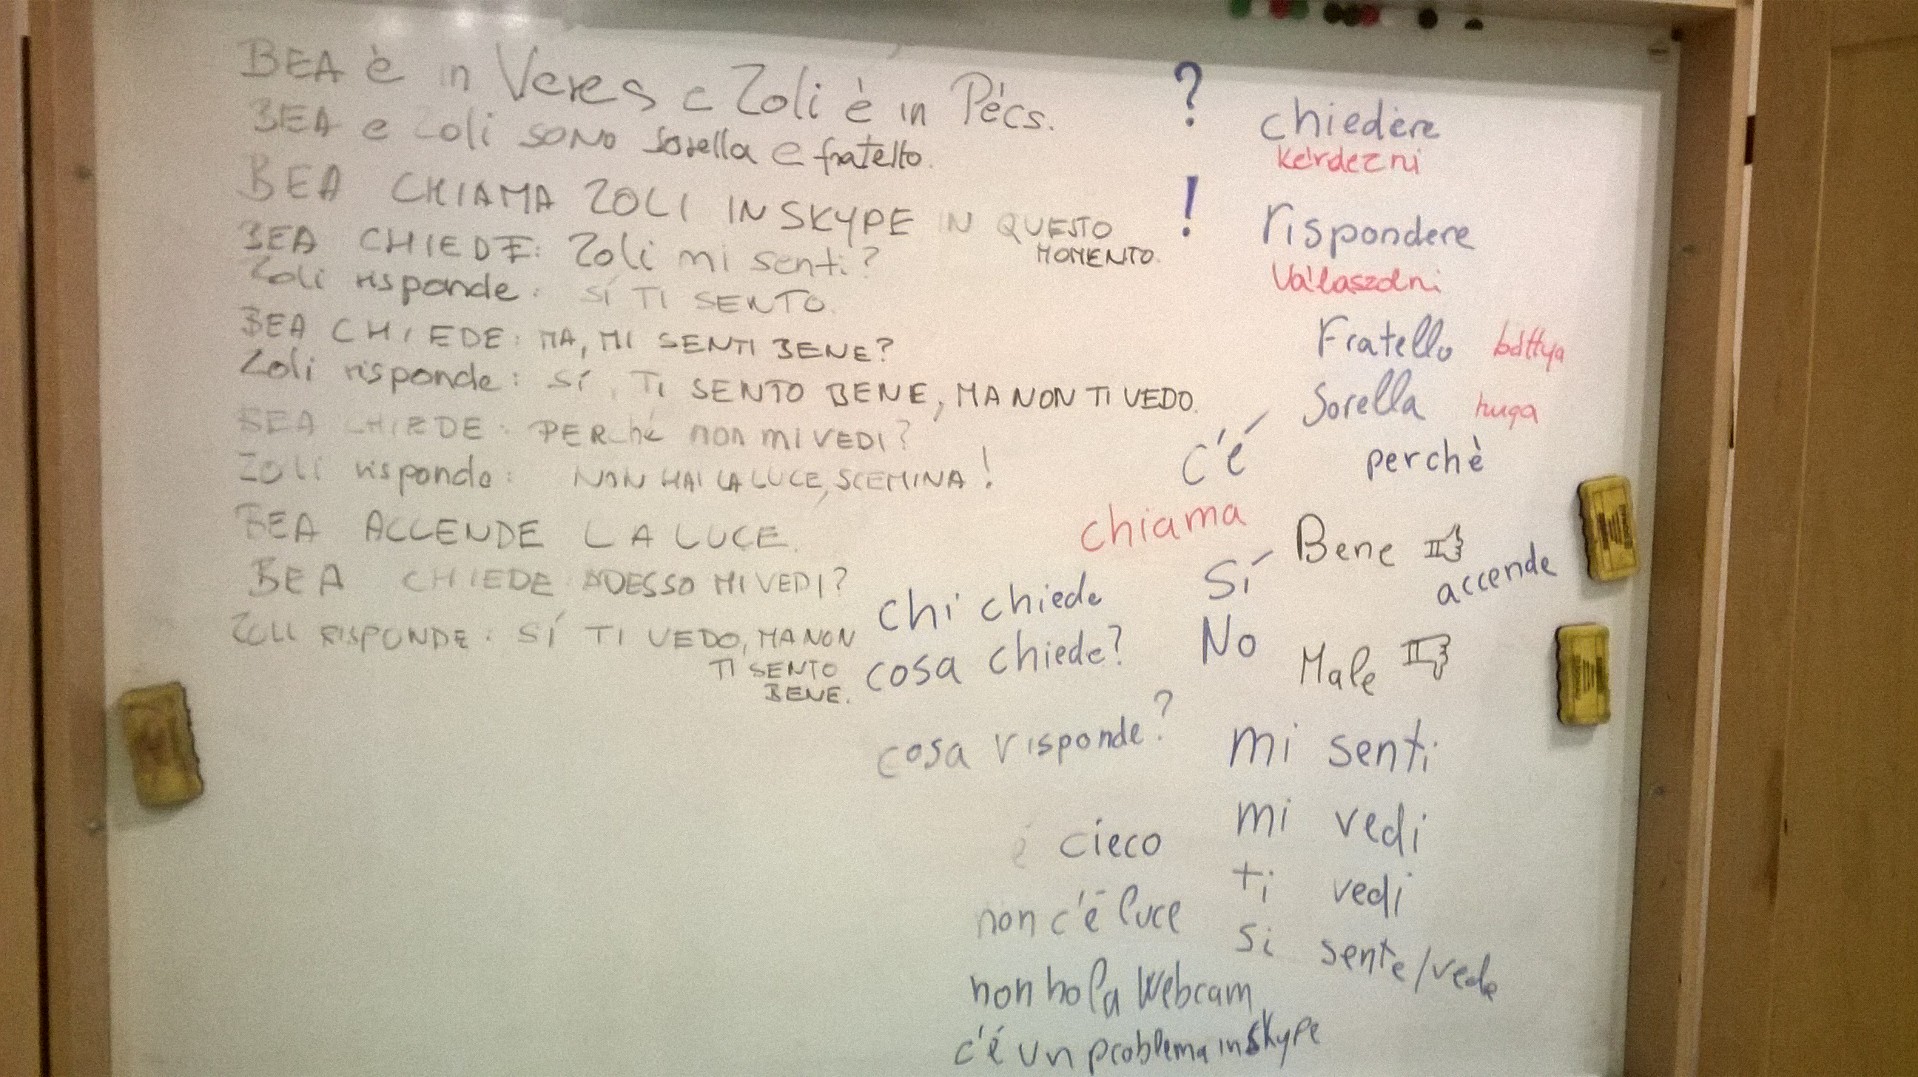 BEA è in Veres e Zoli è in Pécs.
BEA e Zoli SONO Sorella e fratello.
BEA CHIAMA ZOLI IN SKYPE IN QUESTO
MOMENTO.
BEA CHIEDE: Zoli mi senti?
Zoli risponde: SÍ TI SENTO.
BEA CHIEDE: MA, MI SENTI BENE?
Zoli risponde: SÍ, TI SENTO BENE, MA NON TI VEDO.
BEA CHIEDE: PERché non mi VEDI?
ZOLI risponde: NON HAI LA LUCE, SCEMINA!
BEA ACCENDE LA LUCE.
BEA CHIEDE ADESSO MI VEDI?
ZOLI RISPONDE: SÍ TI VEDO, MA NON
TI SENTO
BENE.
? chiedere
kérdezni
! rispondere
Válaszolni
Fratello báttya
Sorella huga
c'é perchè
chiama
Bene
Sí accende
chi chiede
No
cosa chiede?
Male
cosa risponde?
mi senti
mi vedi
é cieco
ti vedi
non c'é luce
si sente/vede
non ho la webcam
c'é un problema in skype